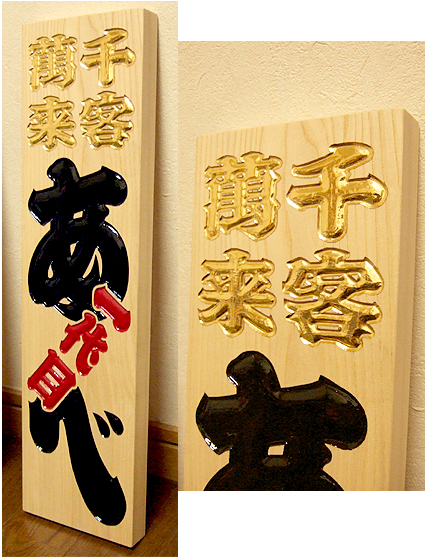 千客
萬来
あべ
一代目
千客
萬来
あ